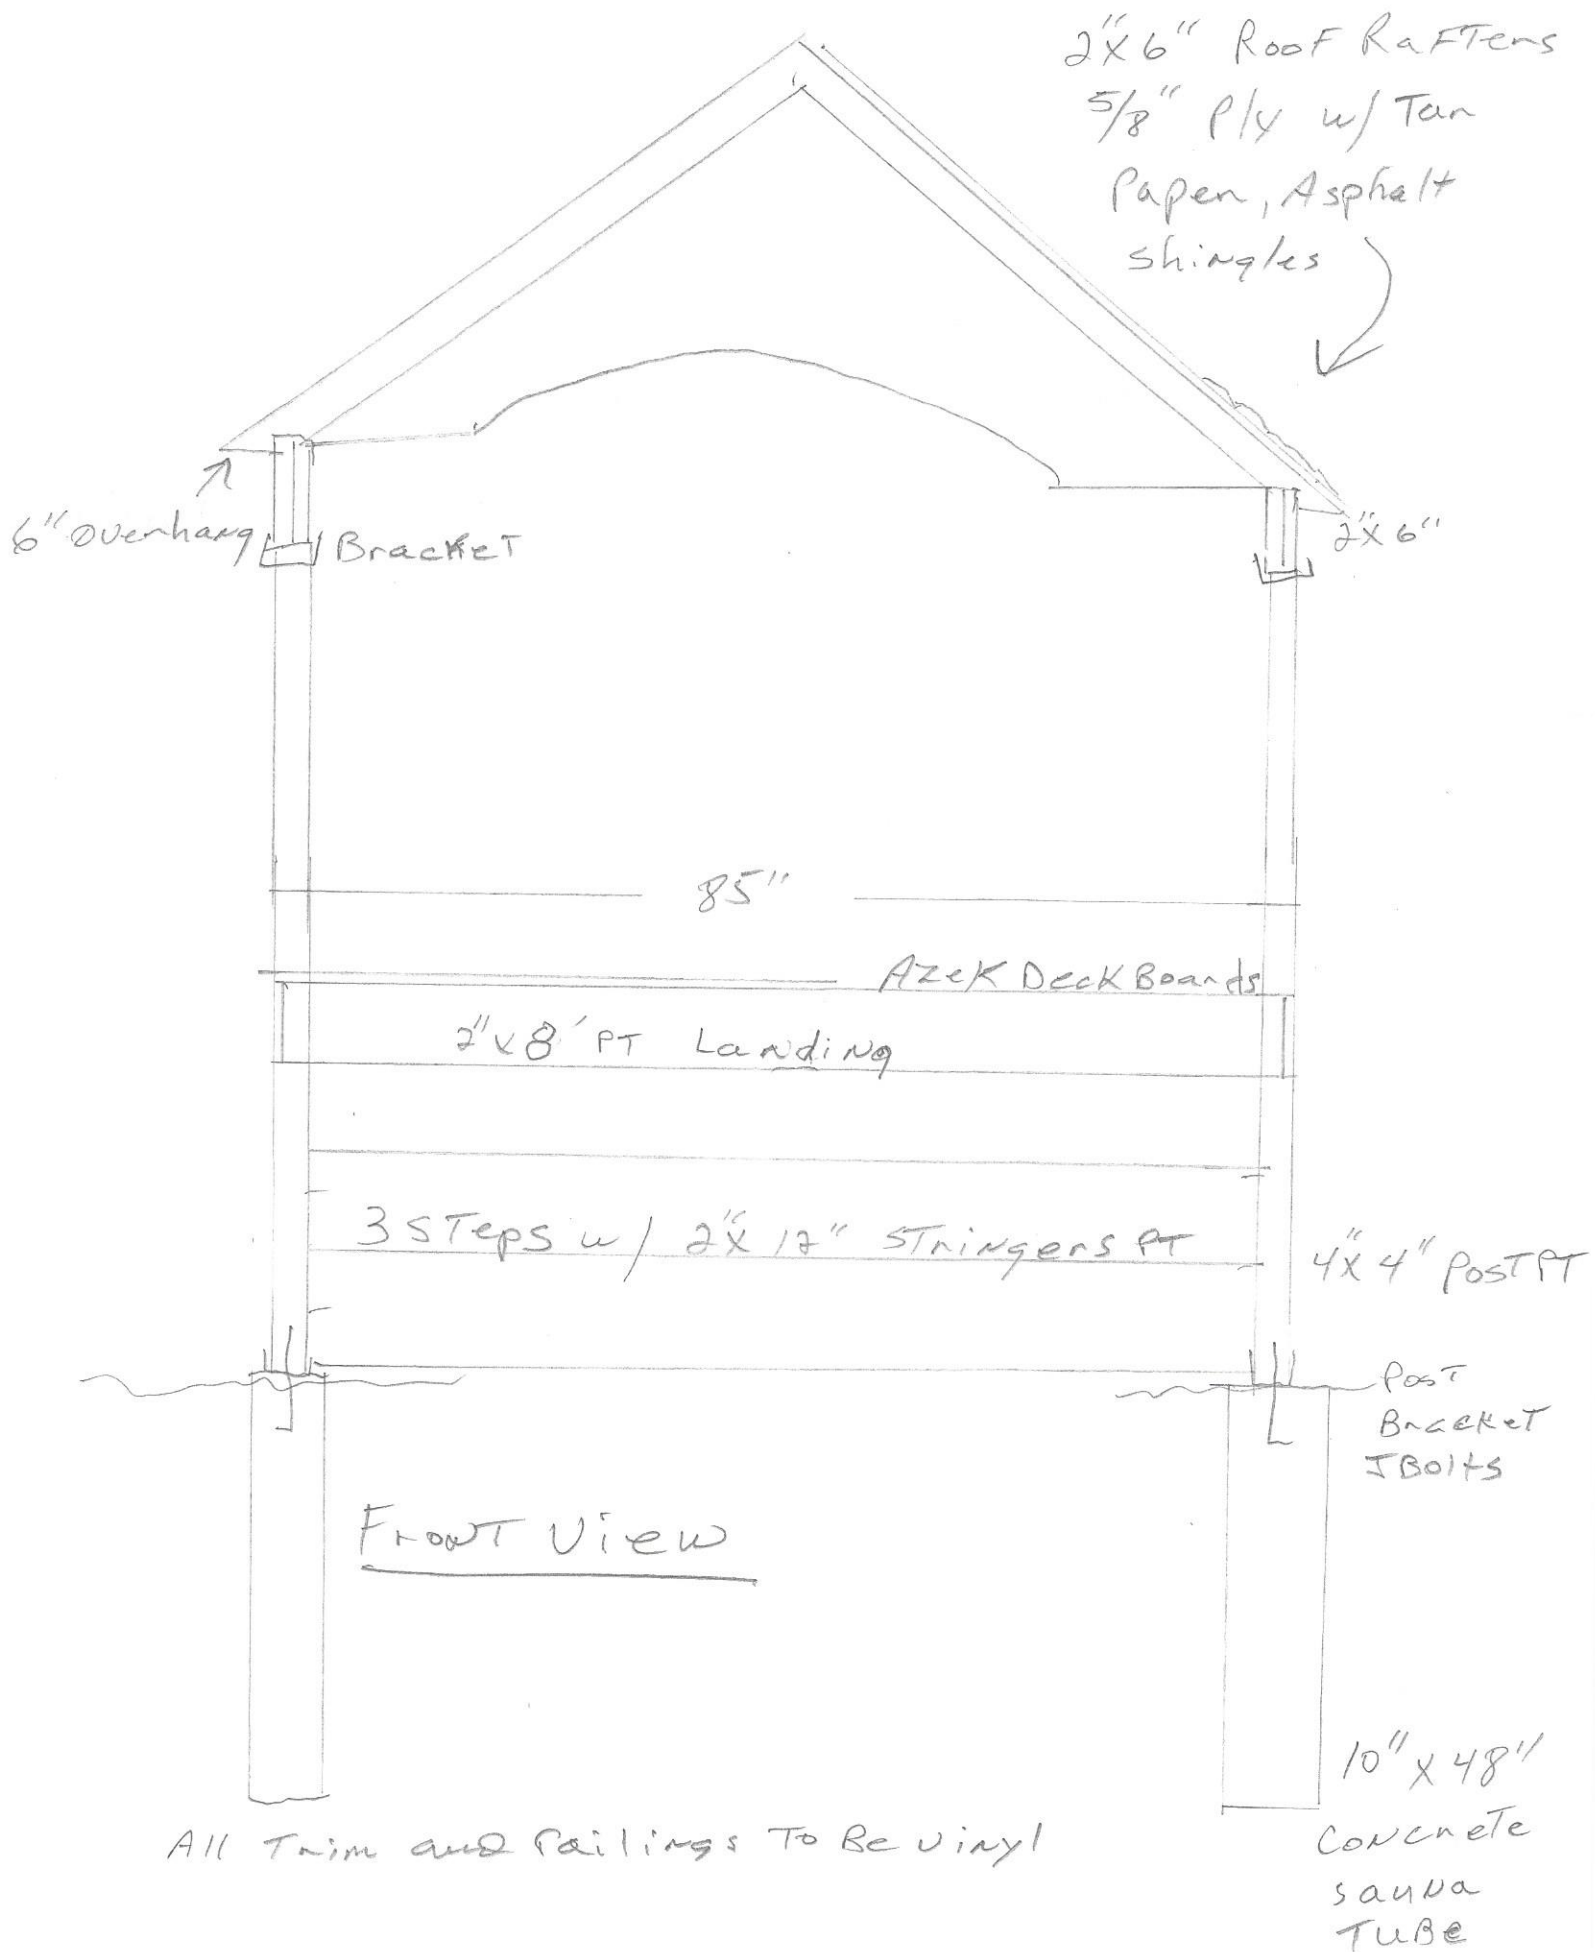 2"x6" Roof Rafters
5/8" Ply w/ Tar
Paper, Asphalt
shingles
6" overhang
Bracket
2"x6"
85"
Azek Deck Boards
2"x8' PT Landing
3 Steps w/ 2"x12" Stringers PT
4"x4" Post PT
Post
Bracket
J Bolts
Front View
10"x48"
Concrete
sauna
Tube
All Trim and Railings To Be vinyl